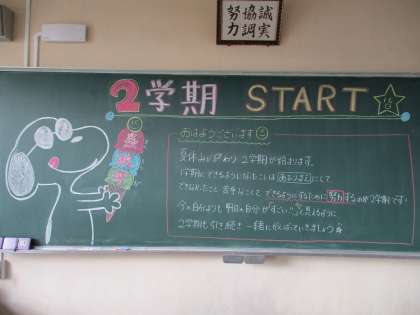 誠実
協調
努力
2学期 START
おはようございます
夏休みが終わり 2学期が始まります。
1学期にできるようになったことは
できなかったこと 苦手なことして できるようにするために 努力するのが2学期です!
今の自分よりも 明日の自分が "すごい!!" って言えるように
2学期も引き続き 一緒にがんばっていきましょう